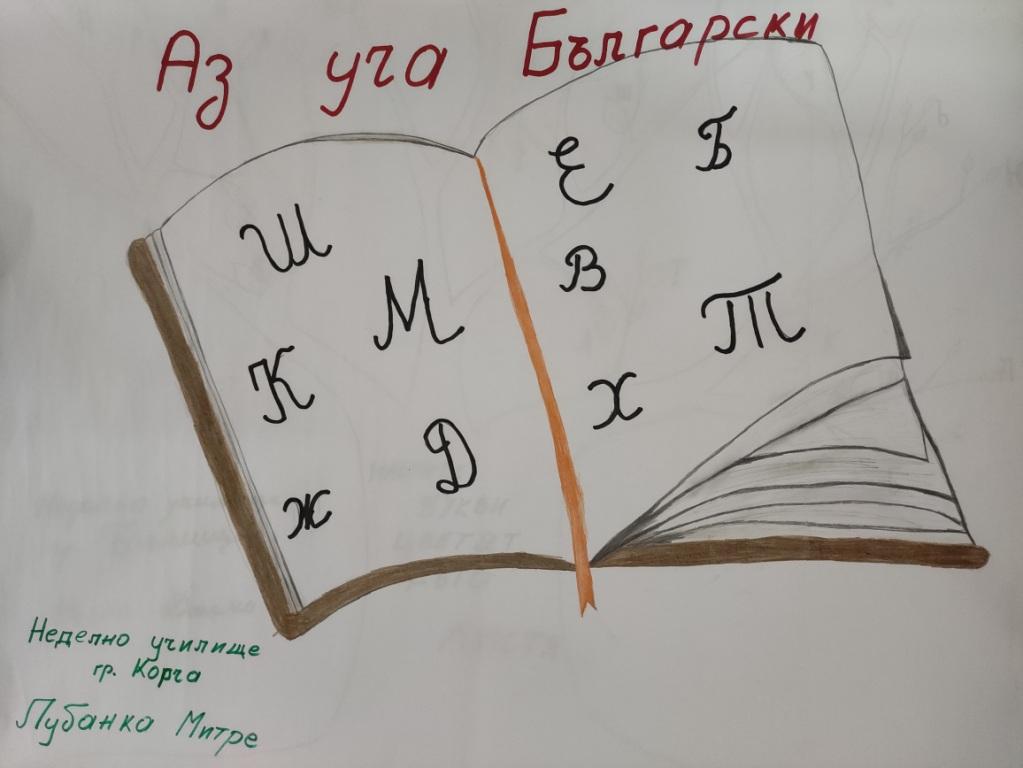 Аз уча Български
Ш
М
К
Д
Ж
Е
Б
В
Т
Х
Неделно училище
гр. Корча
Лубанка Митре